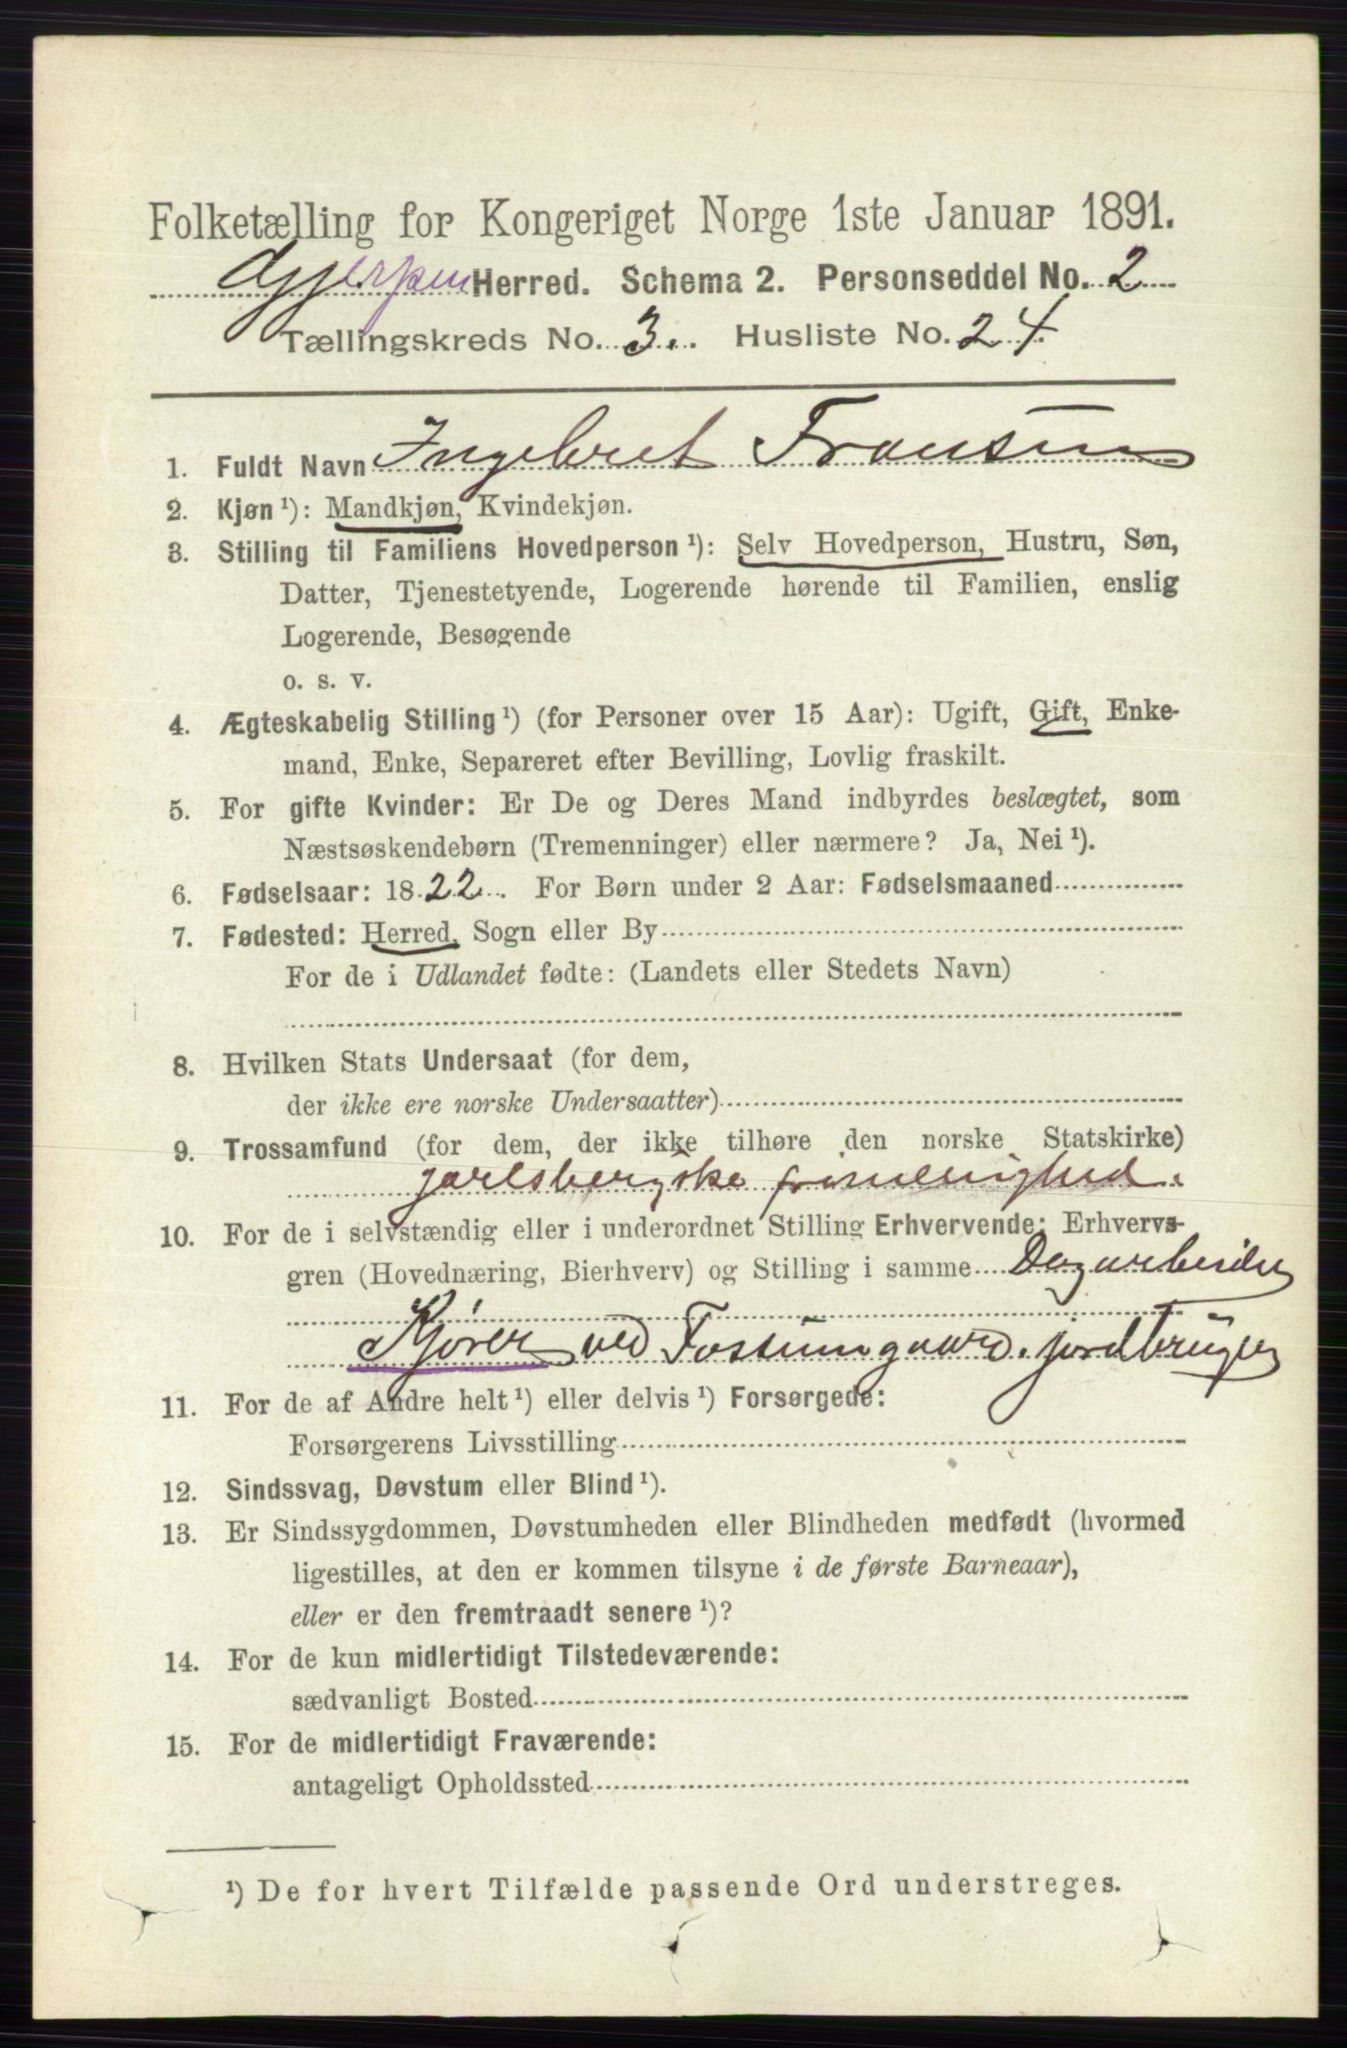 Folketælling for Kongeriget Norge 1ste Januar 1891.
Gjerpen Herred. Schema 2. Personseddel No. 2
Tællingskreds No. 3. Husliste No. 24
1. Fuldt Navn Ingebret Fransen
2. Kjøn ¹): Mandkjøn, Kvindekjøn.
3. Stilling til Familiens Hovedperson ¹): Selv Hovedperson, Hustru, Søn,
Datter, Tjenestetyende, Logerende hørende til Familien, enslig
Logerende, Besøgende
o. s. v.
4. Ægteskabelig Stilling ¹) (for Personer over 15 Aar): Ugift, Gift, Enke-
mand, Enke, Separeret efter Bevilling, Lovlig fraskilt.
5. For gifte Kvinder: Er De og Deres Mand indbyrdes beslægtet, som
Næstsøskendebørn (Tremenninger) eller nærmere? Ja, Nei ¹).
6. Fødselsaar: 1822. For Børn under 2 Aar: Fødselsmaaned
7. Fødested: Herred, Sogn eller By
For de i Udlandet fødte: (Landets eller Stedets Navn)
8. Hvilken Stats Undersaat (for dem,
der ikke ere norske Undersaatter)
9. Trossamfund (for dem, der ikke tilhøre den norske Statskirke)
jarlsbergske frimenighed.
10. For de i selvstændig eller i underordnet Stilling Erhvervende: Erhvervs-
gren (Hovednæring, Bierhverv) og Stilling i samme Dagarbeider
Kjører ved Fossumgaard. jordbruger
11. For de af Andre helt ¹) eller delvis ¹) Forsørgede:
Forsørgerens Livsstilling
12. Sindssvag, Døvstum eller Blind ¹).
13. Er Sindssygdommen, Døvstumheden eller Blindheden medfødt (hvormed
ligestilles, at den er kommen tilsyne i de første Barneaar),
eller er den fremtraadt senere ¹)?
14. For de kun midlertidigt Tilstedeværende:
sædvanligt Bosted
15. For de midlertidigt Fraværende:
antageligt Opholdssted
¹) De for hvert Tilfælde passende Ord understreges.